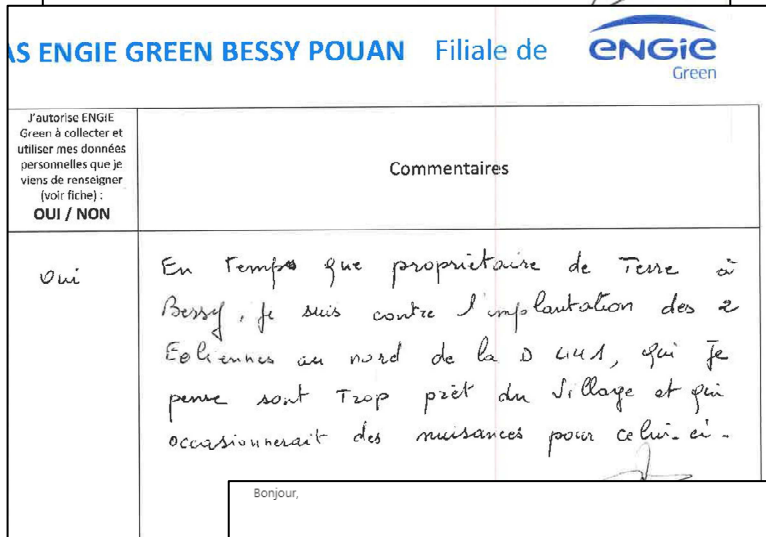 AS ENGIE GREEN BESSY POUAN Filiale de ENGIE Green
J'autorise ENGIE
Green à collecter et
utiliser mes données
personnelles que je
viens de renseigner
(voir fiche) :
OUI / NON
Commentaires
Oui
En Temps que propriétaire de Terre à
Bessy, je suis contre l'implantation des 2
Eoliennes au nord de la D 441, qui Je
pense sont Trop prèt du Village et qui
occasionnerait des nuisances pour celui-ci.
Bonjour,